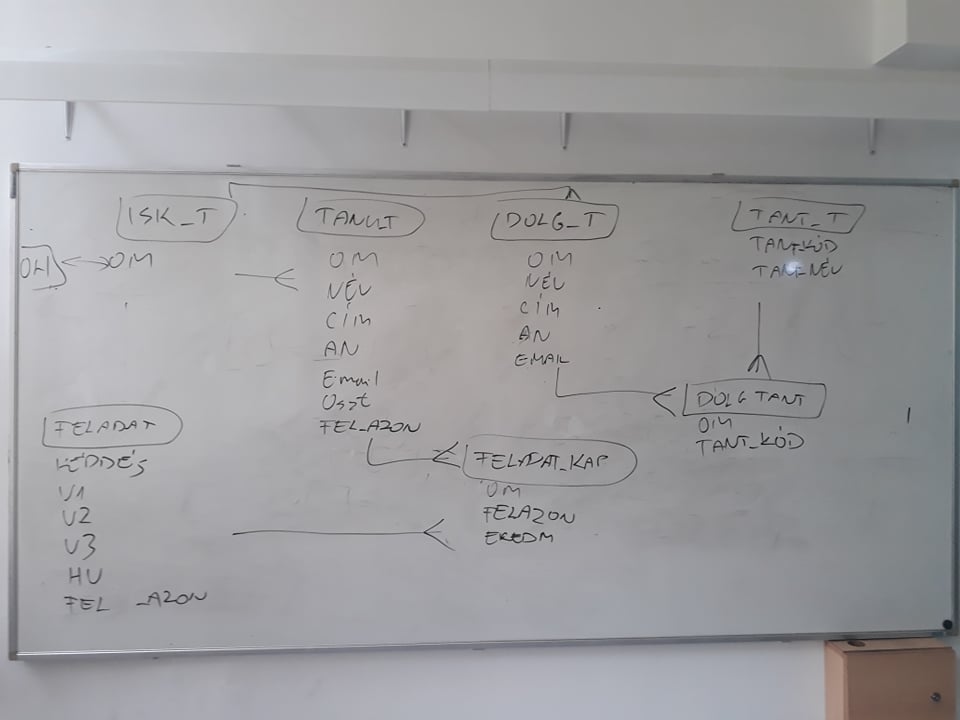 ISK_T
OM
TANULT
OM
NÉV
CÍM
AN
Email
Oszt
FEL_AZON
DOLG_T
OM
NÉV
CÍM
AN
EMAIL
TANT_T
TANT_KÓD
TANT_NÉV
DOLGTANT
OM
TANT_KÓD
FELADAT
KÉRDÉS
V1
V2
V3
HV
FEL_AZON
FELADAT_KAP
OM
FELAZON
EREDM